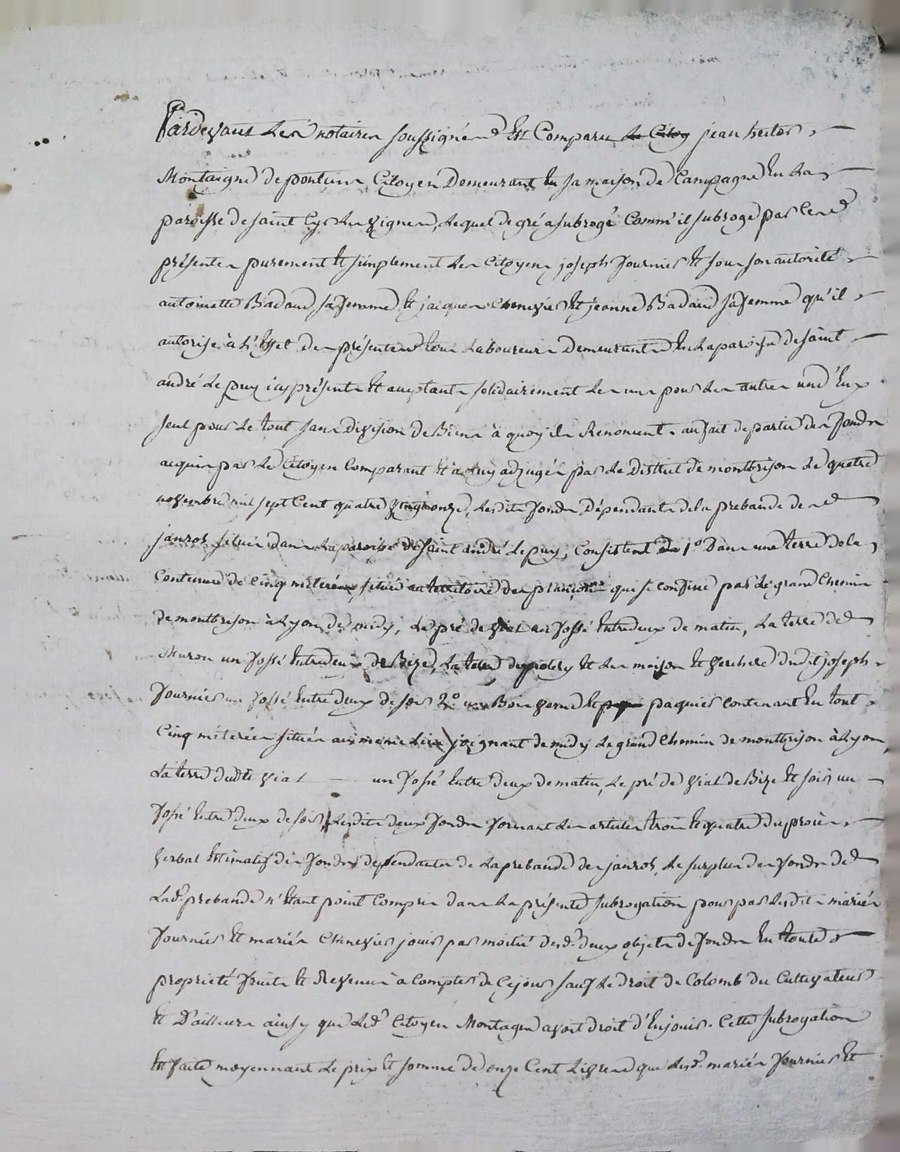 Pardevant les notaires soussignés Est Comparu le Citoy jean hector
Montaigne de poncins Citoyen Demeurant En sa maison de Campagne En la
paroisse de saint Cyr les vignes, Lequel de gré a subrogé Comm'il subroge par Ces
présentes purement Et simplement les Citoyens joseph fournier Et sous son autorité
antoinette Badaud sa femme Et jacques Chenevier Et jeanne Badaud sa femme qu'il
autorise à L'Effet des présentes tous Laboureurs Demeurants En la paroisse de saint
andré Le puy icy présents Et acceptants solidairement les uns pour les autres un d'Eux
seul pour le tout sans Division de Biens à quoy ils Renoncent. au fait de partie des fonds
acquis par le Citoyen Comparant Et à Luy adjugés par le District de montbrison le quatre
novembre mil sept Cent quatre vingt onze, lesdits fonds Dépendants de la prebande des
janros situés dans la paroisse de saint andré Le puy, Consistent 1º Dans une terre de la
Contenue de Cinq méterées, située au territoire des qui se confine par le grand Chemin
de montbrison à Lyon de midy, Le pré de vial un fossé Entredeux de matin, La terre de
Muron un fossé Entredeux de Bize, La terre Et les maison Et verchere dudit joseph
fournier un fossé Entre deux de soir 2º un Bois verne Et paquier contenant En tout
Cinq méterées situés au même lieu joignant de midy Le grand Chemin de montbrison à Lyon
La terre dudit vial un fossé Entre deux de matin, Le pré de vial de Bize Et soir un
fossé Entre deux de soir, Lesdits deux fonds formant les articles trois Et quatre du procès
verbal Estimatif des fonds dépendants de La prebande des janros, Le surplus des fonds de
Lad. prebande n'étant point Compris dans la présente subrogation pour par lesdits mariés
fournier Et mariés Chenevier jouir par moitié desd. deux objets de fonds En toute
propriété fruits Et Revenus à Compter de Ce jour sauf Le droit de Colomb du Cultivateur
Et D'ailleurs ainsy que Led. Citoyen Montagne avoit droit d'En jouir. Cette subrogation
Est faite moyennant Le prix Et somme de onze Cent Livres que lesd. mariés fournier Et